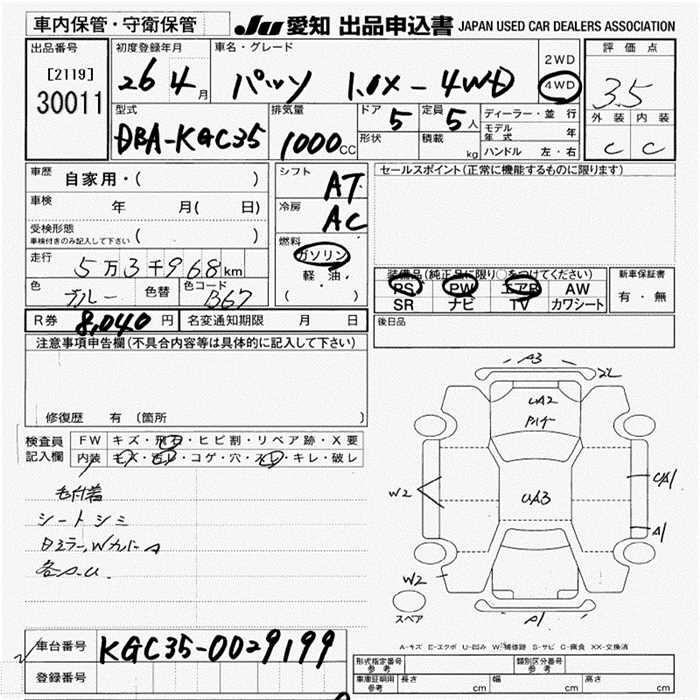 車内保管・守衛保管
JU 愛知 出品申込書 JAPAN USED CAR DEALERS ASSOCIATION
出品番号
[2119]
30011
初度登録年月
26 4月
車名・グレード
パッソ 1.0X-4WD
2WD
4WD
評価点
3.5
外装 内装
C C
型式
DBA-KGC35
排気量
1000cc
ドア 5
定員 5人
形状
積載 kg
ディーラー・並行
モデル年式 年
ハンドル 左・右
車歴 自家用・( )
車検 年 月( 日)
受検形態
車検付きのみ記入して下さい ( )
走行 5万3千968km
色 ブルー 色替 色コード B67
シフト AT
冷房 AC
燃料
ガソリン
軽・油
( )
セールスポイント(正常に機能するものに限ります)
装備品(純正品に限り○をつけてください)
PS PW エアB AW
SR ナビ TV カワシート
新車保証書
有・無
後日品
R券 8,040円 名変通知期限 月 日
注意事項申告欄(不具合内容等は具体的に記入して下さい)
修復歴 有 (箇所 )
検査員記入欄
FW キズ・飛石・ヒビ割・リペア跡・X要
内装 キズ・汚レ・コゲ・穴・スレ・キレ・破レ
毛付着
シートシミ
各A.U
A3
UA2
UA3
W2
UA1
A1
W2
スペア
A1
A-キズ E-エクボ U-凹み W-補修跡 S-サビ C-腐食 XX-交換済
車台番号 KGC35-0029199
登録番号
形式指定番号 参考
類別区分番号 参考
車庫証明用 参考
長さ cm
幅 cm
高さ cm